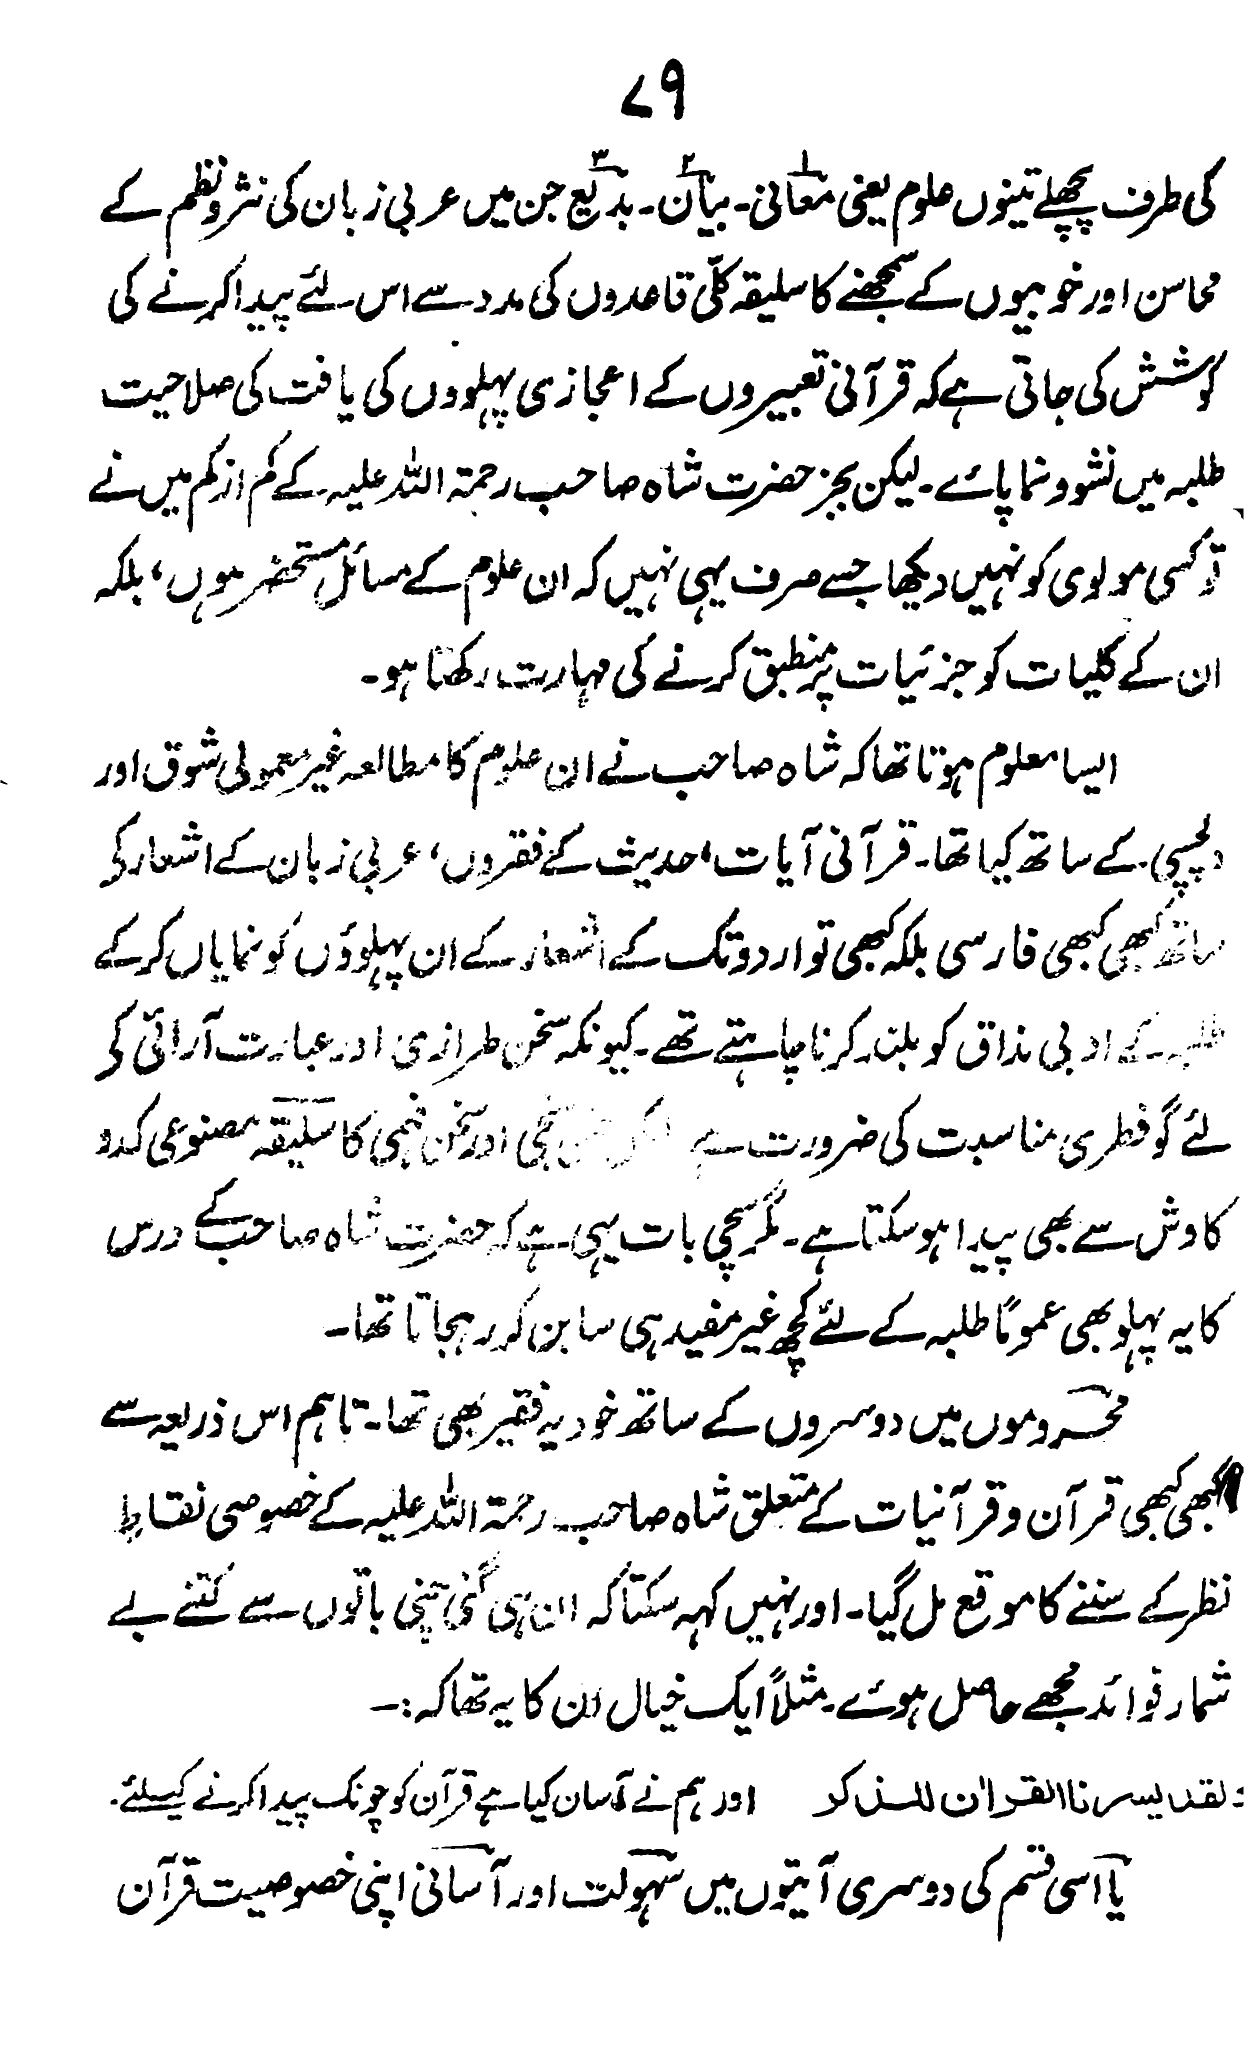 ۷۹
کی طرف پچھلے تینوں علوم یعنی معانی۱۔ بیان۲۔ بدیع۳ جن میں عربی زبان کی نثر و نظم کے
محاسن اور خوبیوں کے سمجھنے کا سلیقہ کلّی قاعدوں کی مدد سے اس لئے پیدا کرنے کی
کوشش کی جاتی ہے کہ قرآنی تعبیروں کے اعجازی پہلووں کی یافت کی صلاحیت
طلبہ میں نشو و نما پائے۔ لیکن بجز حضرت شاہ صاحب رحمۃ اللہ علیہ کے کم از کم میں نے
تو کسی مولوی کو نہیں دیکھا جسے صرف یہی نہیں کہ ان علوم کے مسائل مستحضر ہوں، بلکہ
ان کے کلیات کو جزئیات پر منطبق کرنے کی مہارت رکھتا ہو۔
ایسا معلوم ہوتا تھا کہ شاہ صاحب نے ان علوم کا مطالعہ غیر معمولی شوق اور
دلچسپی کے ساتھ کیا تھا۔ قرآنی آیات، حدیث کے فقروں، عربی زبان کے اشعار کے
ساتھ کبھی کبھی فارسی بلکہ کبھی تو اردو تک کے اشعار کے ان پہلوؤں کو نمایاں کر کے
طلبہ کے ادبی مذاق کو بلند کرنا چاہتے تھے۔ کیونکہ سخن طرازی اور عبارت آرائی کے
لئے گو فطری مناسبت کی ضرورت ہے اور سخن فہمی کا سلیقہ مصنوعی کدو
کاوش سے بھی پیدا ہو سکتا ہے۔ مگر سچی بات یہی ہے کہ حضرت شاہ صاحب کے درس
کا یہ پہلو بھی عموماً طلبہ کے لئے کچھ غیر مفید ہی سا بن کر رہجاتا تھا۔
محروموں میں دوسروں کے ساتھ خود یہ فقیر بھی تھا۔ تاہم اس ذریعہ سے
کبھی کبھی قرآن و قرآنیات کے متعلق شاہ صاحب رحمۃ اللہ علیہ کے خصوصی نقاط
نظر کے سننے کا موقع مل گیا۔ اور نہیں کہہ سکتا کہ ان ہی گنی چنی باتوں سے کتنے بے
شمار فوائد مجھے حاصل ہوئے۔ مثلاً ایک خیال ان کا یہ تھا کہ :۔
ولقد یسرنا القران للذکر اور ہم نے آسان کیا ہے قرآن کو چونک پیدا کرنے کیلئے۔
یا اسی قسم کی دوسری آیتوں میں سہولت اور آسانی اپنی خصوصیت قرآن